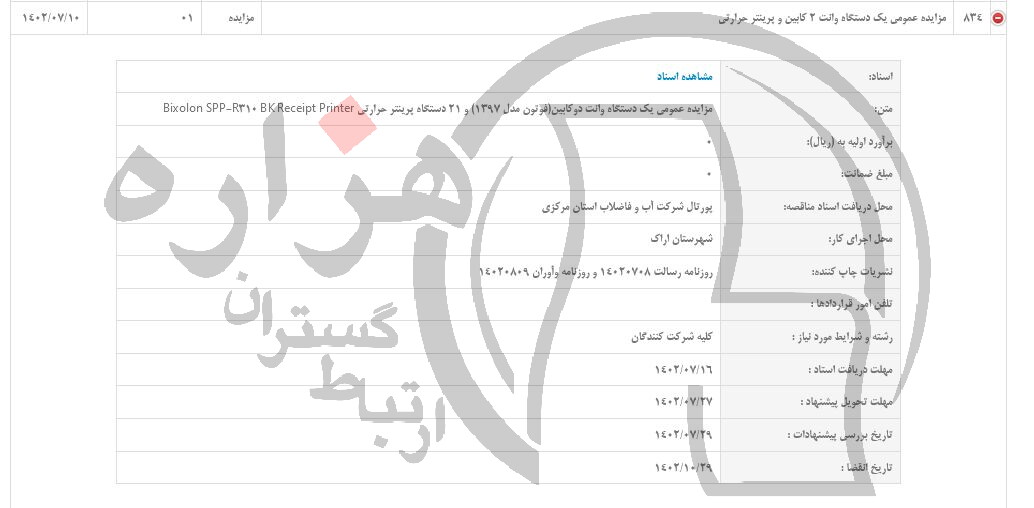 ۸۳٤ مزایده عمومی یک دستگاه وانت ۲ کابین و پرینتر حرارتی مزایده ۰۱ ۱٤۰۲/۰۷/۱۰
اسناد: مشاهده اسناد
متن: مزایده عمومی یک دستگاه وانت دوکابین(فوتون مدل ۱۳۹۷) و ۲۱ دستگاه پرینتر حرارتی Bixolon SPP-R۳۱۰ BK Receipt Printer
برآورد اولیه به (ریال): ۰
مبلغ ضمانت: ۰
محل دریافت اسناد مناقصه: پورتال شرکت آب و فاضلاب استان مرکزی
محل اجرای کار: شهرستان اراک
نشریات چاپ کننده: روزنامه رسالت ۱٤۰۲۰۷۰۸ و روزنامه وآوران ۱٤۰۲۰۸۰۹
تلفن امور قراردادها :
رشته و شرایط مورد نیاز : کلیه شرکت کنندگان
مهلت دریافت اسناد : ۱٤۰۲/۰۷/۱٦
مهلت تحویل پیشنهاد : ۱٤۰۲/۰۷/۲۷
تاریخ بررسی پیشنهادات : ۱٤۰۲/۰۷/۲۹
تاریخ انقضا : ۱٤۰۲/۱۰/۲۹
هزاره
گستران
ارتباط